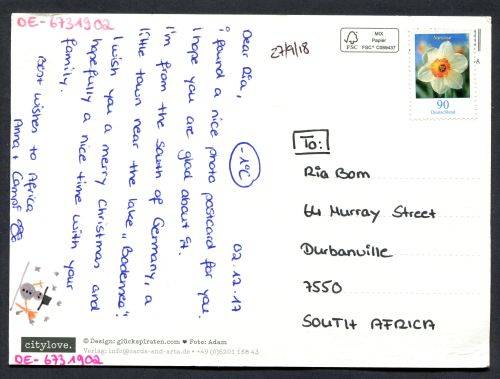 DE-6731902
Dear Ria, -1°C 02.12.17
I found a nice photo postcard for you.
I hope you are glad about it.
I'm from the south of Germany, a
little town near the lake „Bodensee"
I wish you a merry Christmas and
hopefully a nice time with your
family.
Best wishes to Africa
Anna +
citylove.
DE-6731902
© Design: glückspiraten.com ♥ Foto: Adam
Verlag: info@cards-and-arts.de • +49 (0)5201 158 43
27/9/18
FSC
MIX
Papier
FSC® C089437
Narzisse
90
Deutschland
To:
Ria Bom
64 Murray Street
Durbanville
7550
SOUTH AFRICA